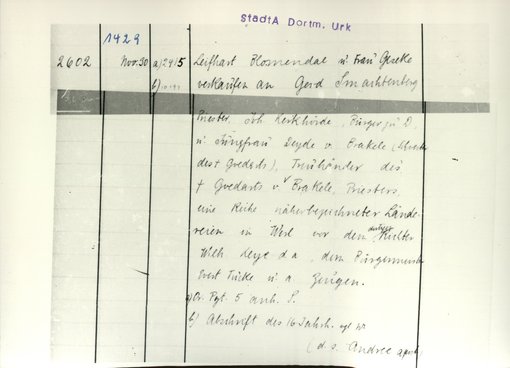 StadtA Dortm. Urk
1429
2602 Nov. 30 a) 2915 Leifhart Blomendal u. Frau Geseke
b) verkaufen an Gerd Smachtenberg
Priester, Joh. Lerkhörde, Bürger zu D.
u. Jungfrau Leyde v. Brakele
des † Goedarts), Treuhänder des
† Goedarts v. Brakele, Priesters,
eine Reihe näherbezeichneter Lände-
reien in Werl vor dem Richter
Wilh. Leye d. a., dem Bürgermeister
Evert Tücke u. a. Zeugen.
a) Or. Pgt. 5 anh. S.
b) Abschrift des 16 Jahrh.
(d. s. Andree